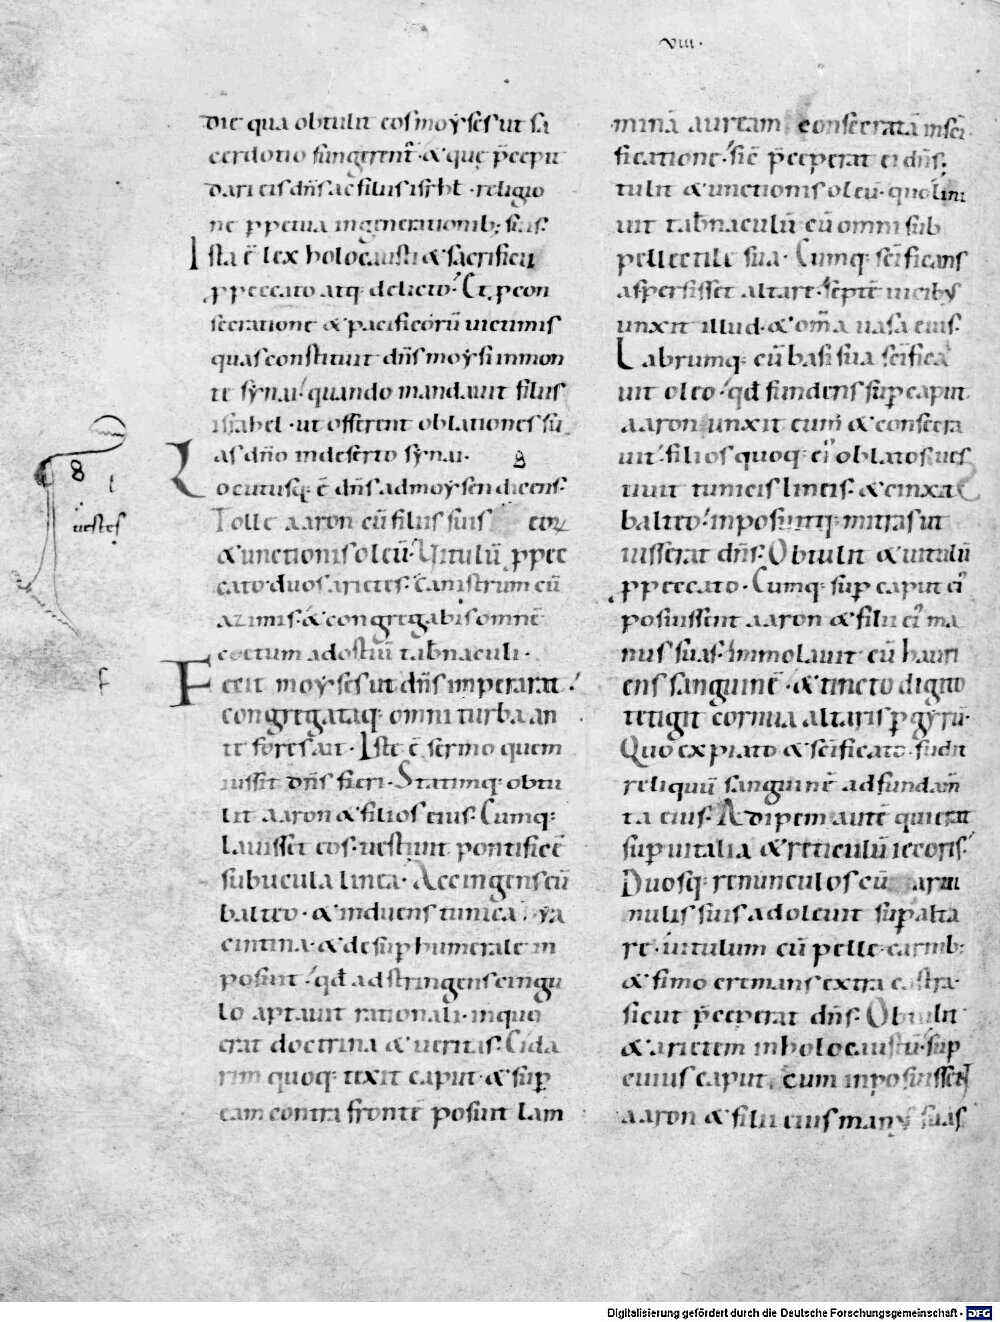 viii.
die qua obtulit eos moyses ut sa
cerdotio fungerent᷑. & quę p̄cepit
dari eis dn̄s a filiis isrl̄. religio
ne ꝑpetua in generationib; suis.
Ista ē lex holocausti & sacrificii
ꝓ peccato atq; delicto. Et ꝓ con
secratione & pacificorū uictimis
quas constituit dn̄s moysi in mon
te synai. quando mandauit filiis
israhel. ut offerrent oblationes su
as dn̄o in deserto synai. 8
Locutusq; ē dn̄s ad moysen dicens.
Tolle aaron cū filiis suis eorum
& unctionis oleū. Vitulū ꝓ pec
cato. duos arietes. Canistrum cū
azimis. & congregabis omnē
coetum ad ostiū tab̄naculi.
Fecit moyses ut dn̄s imperarat.
congregataq; omni turba an
te fores ait. Iste ē sermo quem
iussit dn̄s fieri. Statimq; obtu
lit aaron & filios eius. Cumq;
lauisset eos. uestiuit pontificē
subucula linea. Accingens eū
balteo. & induens tunica hya
cintina. & desup̄ humerale in
posuit. qđ adstringens cingu
lo aptauit rationali. in quo
erat doctrina & ueritas. Cida
rim quoq; texit caput. & sup̄
eam contra frontē posuit lam
minā auream consecratā in sc̄i
ficatione. sic̄ p̄ceperat ei dn̄s.
tulit & unctionis oleū. quo lini
uit tab̄naculū cū omni sub
pellectile sua. Cumq; sc̄ificans
aspersisset altare. septē uicibus
unxit illud. & om̄a uasa eius.
Labrumq; cū basi sua sc̄ifica
uit oleo. qđ fundens sup̄ caput
aaron unxit eum. & consecra
uit. filios quoq; ei᷒ oblatos ues
tiuit tunicis lineis. & cinxit
balteo. inposuitq; mitras ut
iusserat dn̄s. Obtulit & uitulū
ꝓ peccato. Cumq; sup̄ caput ei᷒
posuissent aaron & filii ei᷒ ma
nus suas. immolauit eū hauri
ens sanguinē. & tincto digito
tetigit cornua altaris ꝑ gyrū.
Quo expiato & sc̄ificato. fudit
reliquū sanguinē ad fundam̄
ta eius. Adipem autē qui erat
sup̄ uitalia & reticulū iecoris.
Duosq; renunculos cū arui
nulis suis adoleuit sup̄ alta
re. uitulum cū pelle. carnib;
& fimo cremans extra castra.
sicut p̄ceperat dn̄s. Obtulit
& arietem in holocaustū. sup̄
cuius caput. cum inposuissent
aaron & filii eius manus suas
8
uestes
f
Digitalisierung gefördert durch die Deutsche Forschungsgemeinschaft - DFG